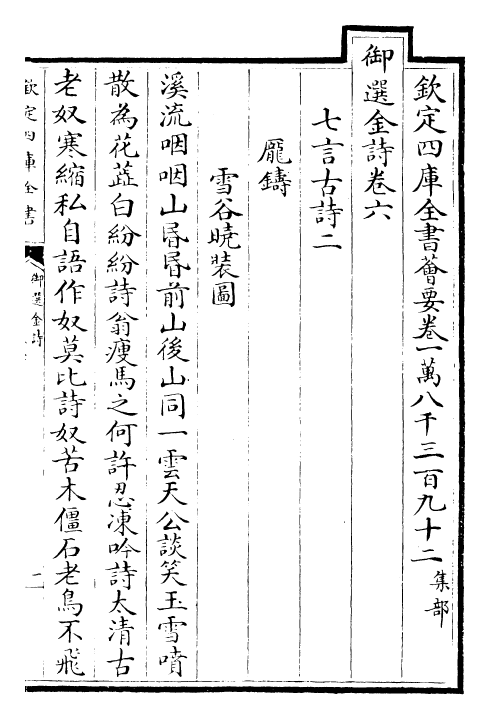 欽定四庫全書薈要卷一萬八千三百九十二 集部
御選金詩卷六
七言古詩二
龎鑄
雪谷曉裝圖
溪流咽咽山昬昬前山後山同一雲天公談笑玉雪噴
散為花蕋白紛紛詩翁瘦馬之何許忍凍吟詩太清古
老奴寒縮私自語作奴莫比詩奴苦木僵石老鳥不飛
欽定四庫全書
御選金詩